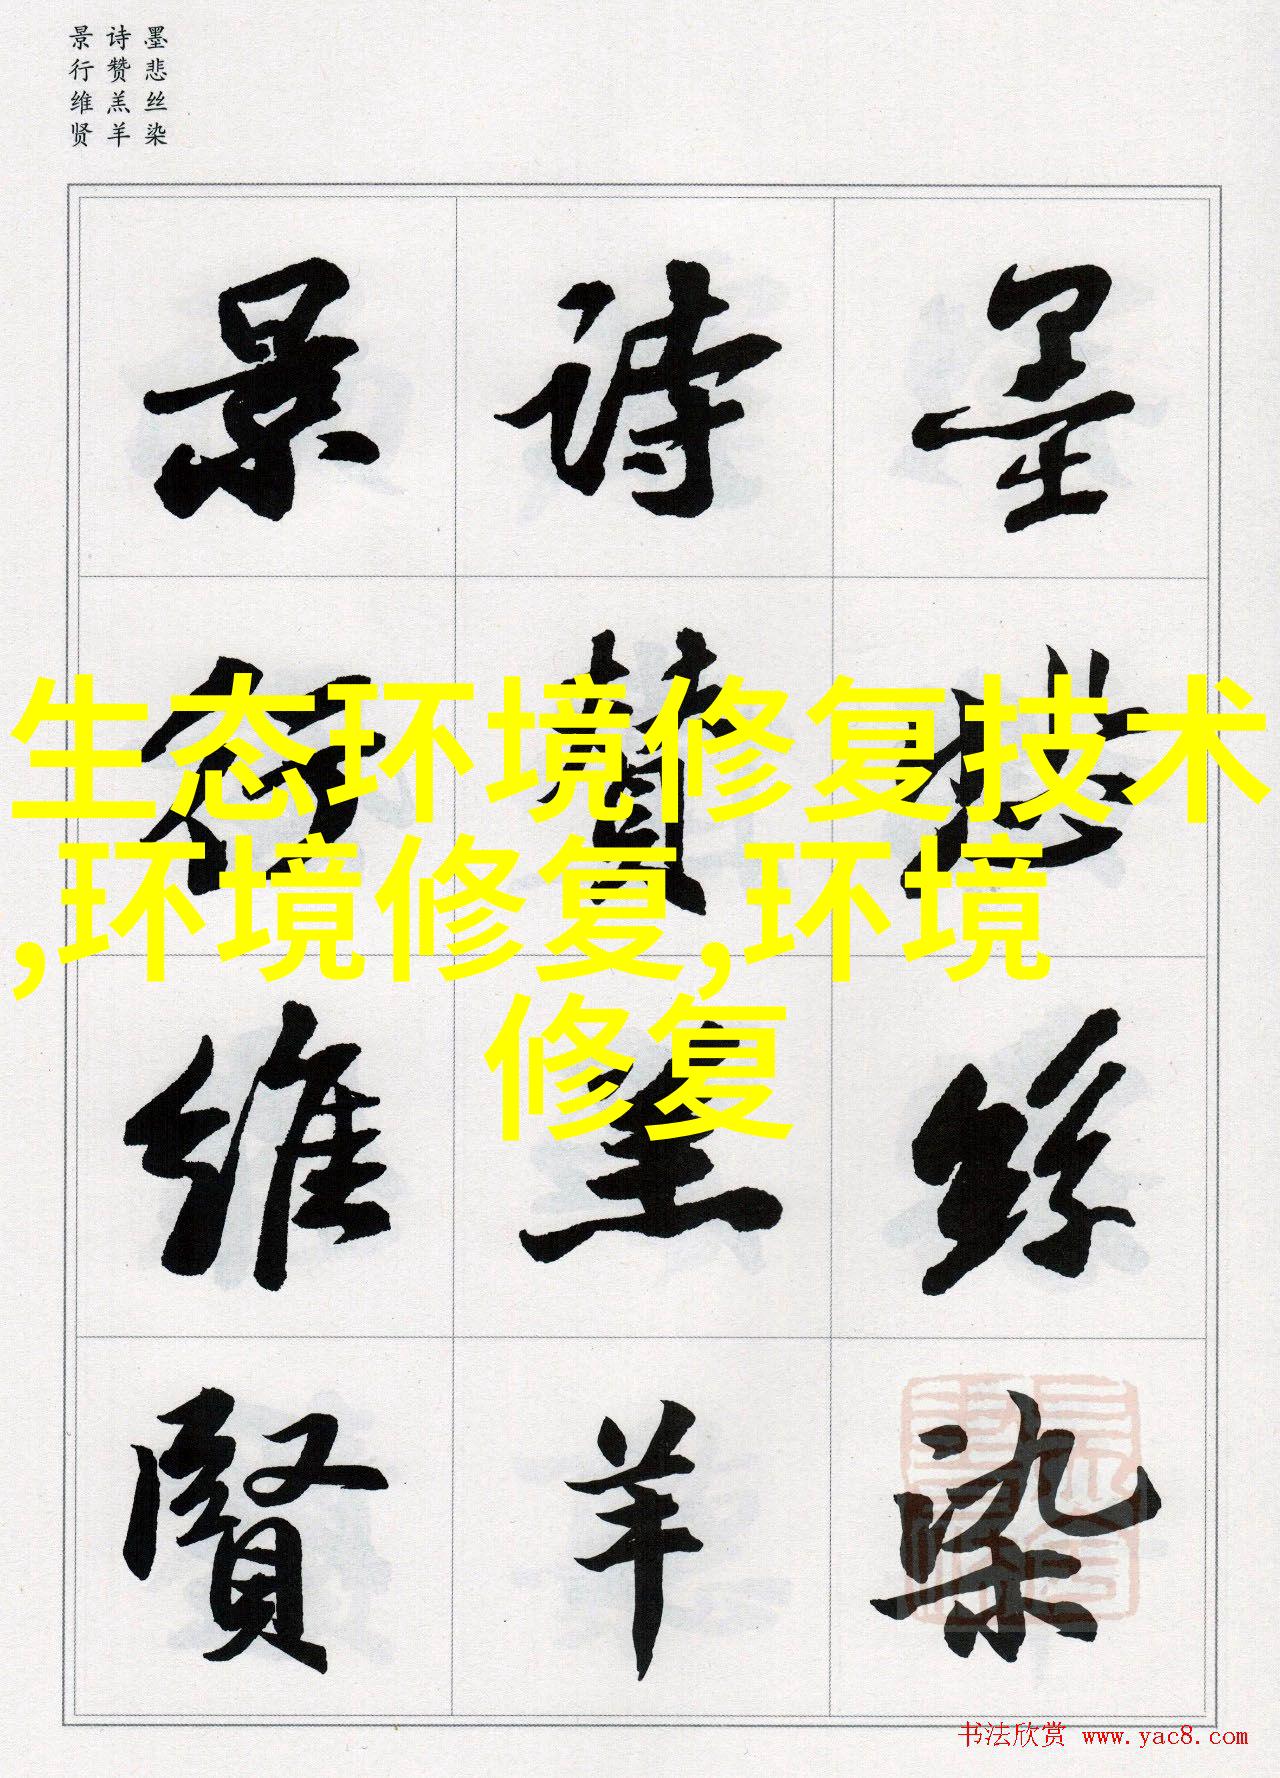 墨悲丝染
诗赞羔羊
景行维贤
墨悲絲染
詩讚羔羊
景行維賢
生态环境修复技术
,环境修复,环境
修复
书法欣赏 www.yac8.com